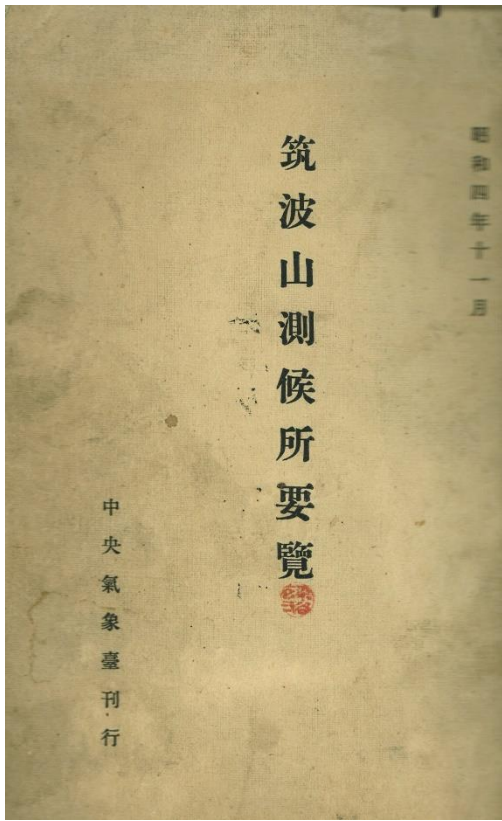 昭和四年十一月
筑波山測候所要覽
中央氣象臺刊行